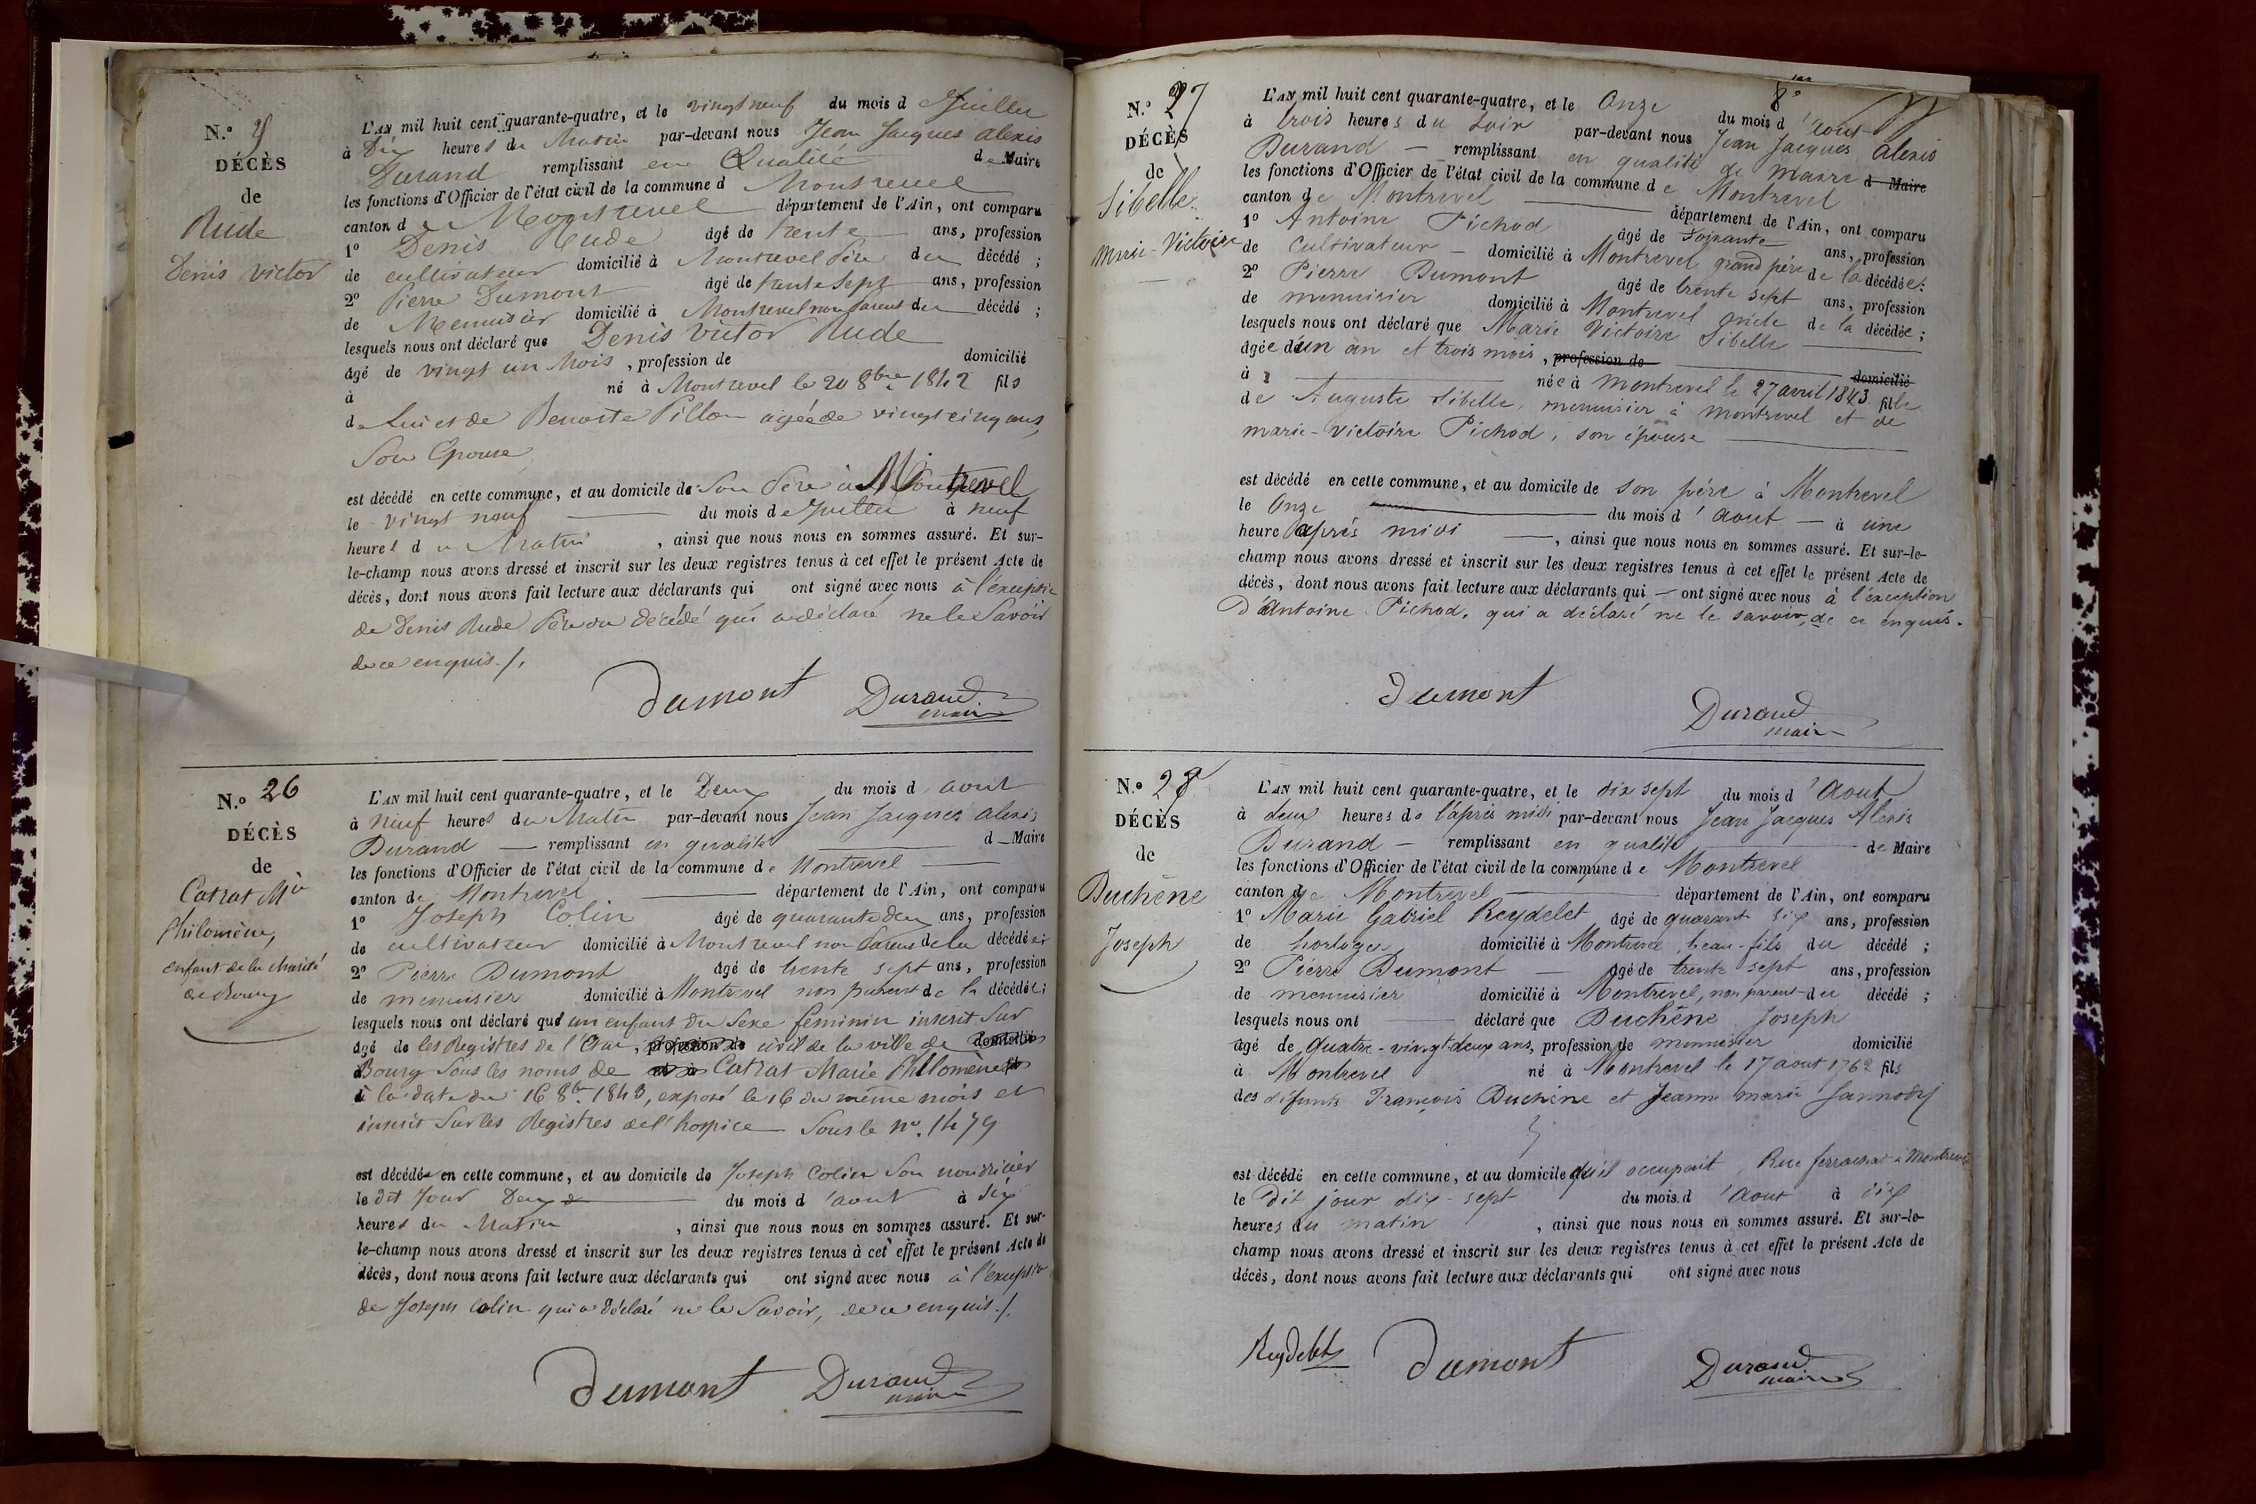 N.o
DÉCÈS
de
Rude
Denis Victor
L'AN mil huit cent quarante-quatre, et le vingt neuf du mois d Juillet
à Dix heures du Matin par-devant nous Jean Jacques Alexis
Durand remplissant en Qualité de Maire
les fonctions d'Officier de l'état civil de la commune d Montrevel
canton de Montrevel département de l'Ain, ont comparu
1o Denis Rude âgé de trente ans, profession
de cultivateur domicilié à Montrevel Père du décédé ;
2o Pierre Dumont âgé de trente sept ans, profession
de Menuisier domicilié à Montrevel non Parent du décédé ;
lesquels nous ont déclaré que Denis Victor Rude
âgé de vingt un Mois, profession de domicilié
à né à Montrevel le 20 8bre 1842 fils
de Lui et de Benoite Pillon agée de vingt cinq ans,
Son Epouse
est décédé en cette commune, et au domicile de Son Père à Montrevel
le vingt neuf du mois de Juillet à neuf
heures du Matin, ainsi que nous nous en sommes assuré. Et sur-
le-champ nous avons dressé et inscrit sur les deux registres tenus à cet effet le présent Acte de
décès, dont nous avons fait lecture aux déclarants qui ont signé avec nous à l'exception
de Denis Rude Père du décédé qui a déclaré ne le Savoir
de ce enquis./.
Dumont Durand
maire
N.o 26
DÉCÈS
de
Catrat Mie
Philomène,
enfant de la charité
de Bourg
L'AN mil huit cent quarante-quatre, et le Deux du mois d aout
à Neuf heures du Matin par-devant nous Jean Jacques Alexis
Durand — remplissant en qualité d Maire
les fonctions d'Officier de l'état civil de la commune de Montrevel
canton de Montrevel département de l'Ain, ont comparu
1o Joseph Colin âgé de quarante deux ans, profession
de cultivateur domicilié à Montrevel non Parent de la décédée ;
2o Pierre Dumont âgé de trente sept ans, profession
de menuisier domicilié à Montrevel non parent de la décédée ;
lesquels nous ont déclaré que un enfant du Sexe féminin inscrit Sur
âgé de les Registres de l'Etat, profession de civil de la ville de domicilié
Bourg Sous les noms de né à Catrat Marie Philomène
à la date du 16 8bre 1843, exposé le 16 du même mois et
inscrit Sur les Registres de l'hospice Sous le no. 1479
est décédée en cette commune, et au domicile de Joseph Colin Son nourricier
le dit Jour Deux du mois d'aout à Six
heures du Matin, ainsi que nous nous en sommes assuré. Et sur-
le-champ nous avons dressé et inscrit sur les deux registres tenus à cet effet le présent Acte de
décès, dont nous avons fait lecture aux déclarants qui ont signé avec nous à l'exception
de Joseph Colin qui a déclaré ne le Savoir, de ce enquis./.
Dumont Durand
maire
N.o 27
DÉCÈS
de
Sibelle
Marie-Victoire
L'AN mil huit cent quarante-quatre, et le Onze du mois d'aout
à trois heures du Soir par-devant nous Jean Jacques Alexis
Durand — remplissant en qualité de Maire d Maire
les fonctions d'Officier de l'état civil de la commune de Montrevel
canton de Montrevel département de l'Ain, ont comparu
1o Antoine Pichod âgé de soixante ans, profession
de Cultivateur — domicilié à Montrevel grand père de la décédée ;
2o Pierre Dumont âgé de trente sept ans, profession
de menuisier domicilié à Montrevel oncle de la décédée ;
lesquels nous ont déclaré que Marie Victoire Sibelle
âgée d'un an et trois mois, profession de domicilié
à née à Montrevel le 27 avril 1843 fille
de Auguste Sibelle, menuisier à Montrevel et de
marie-Victoire Pichod, son épouse
est décédé en cette commune, et au domicile de son père à Montrevel
le Onze du mois d'aout — à une
heure après midi —, ainsi que nous nous en sommes assuré. Et sur-le-
champ nous avons dressé et inscrit sur les deux registres tenus à cet effet le présent Acte de
décès, dont nous avons fait lecture aux déclarants qui — ont signé avec nous à l'exception
D'Antoine Pichod, qui a déclaré ne le savoir, de ce enquis.
Dumont Durand
maire
N.o 28
DÉCÈS
de
Duchêne
Joseph
L'AN mil huit cent quarante-quatre, et le dix sept du mois d'Aout
à deux heures de l'après midi par-devant nous Jean Jacques Alexis
Durand — remplissant en qualité de Maire
les fonctions d'Officier de l'état civil de la commune de Montrevel
canton de Montrevel département de l'Ain, ont comparu
1o Marie Gabriel Reydelet âgé de quarante six ans, profession
de horloger domicilié à Montrevel, beau-fils du décédé ;
2o Pierre Dumont — âgé de trente sept ans, profession
de menuisier domicilié à Montrevel, non parent du décédé ;
lesquels nous ont déclaré que Duchêne Joseph
âgé de Quatre-vingt-deux ans, profession de menuisier domicilié
à Montrevel né à Montrevel le 17 aout 1762 fils
des défunts François Duchêne et Jeanne marie
est décédé en cette commune, et au domicile qu'il occupait, Rue à Montrevel
le Dit jour dix-sept du mois d'Aout à dix
heures du matin, ainsi que nous nous en sommes assuré. Et sur-le-
champ nous avons dressé et inscrit sur les deux registres tenus à cet effet le présent Acte de
décès, dont nous avons fait lecture aux déclarants qui ont signé avec nous
Reydelet Dumont Durand
maire